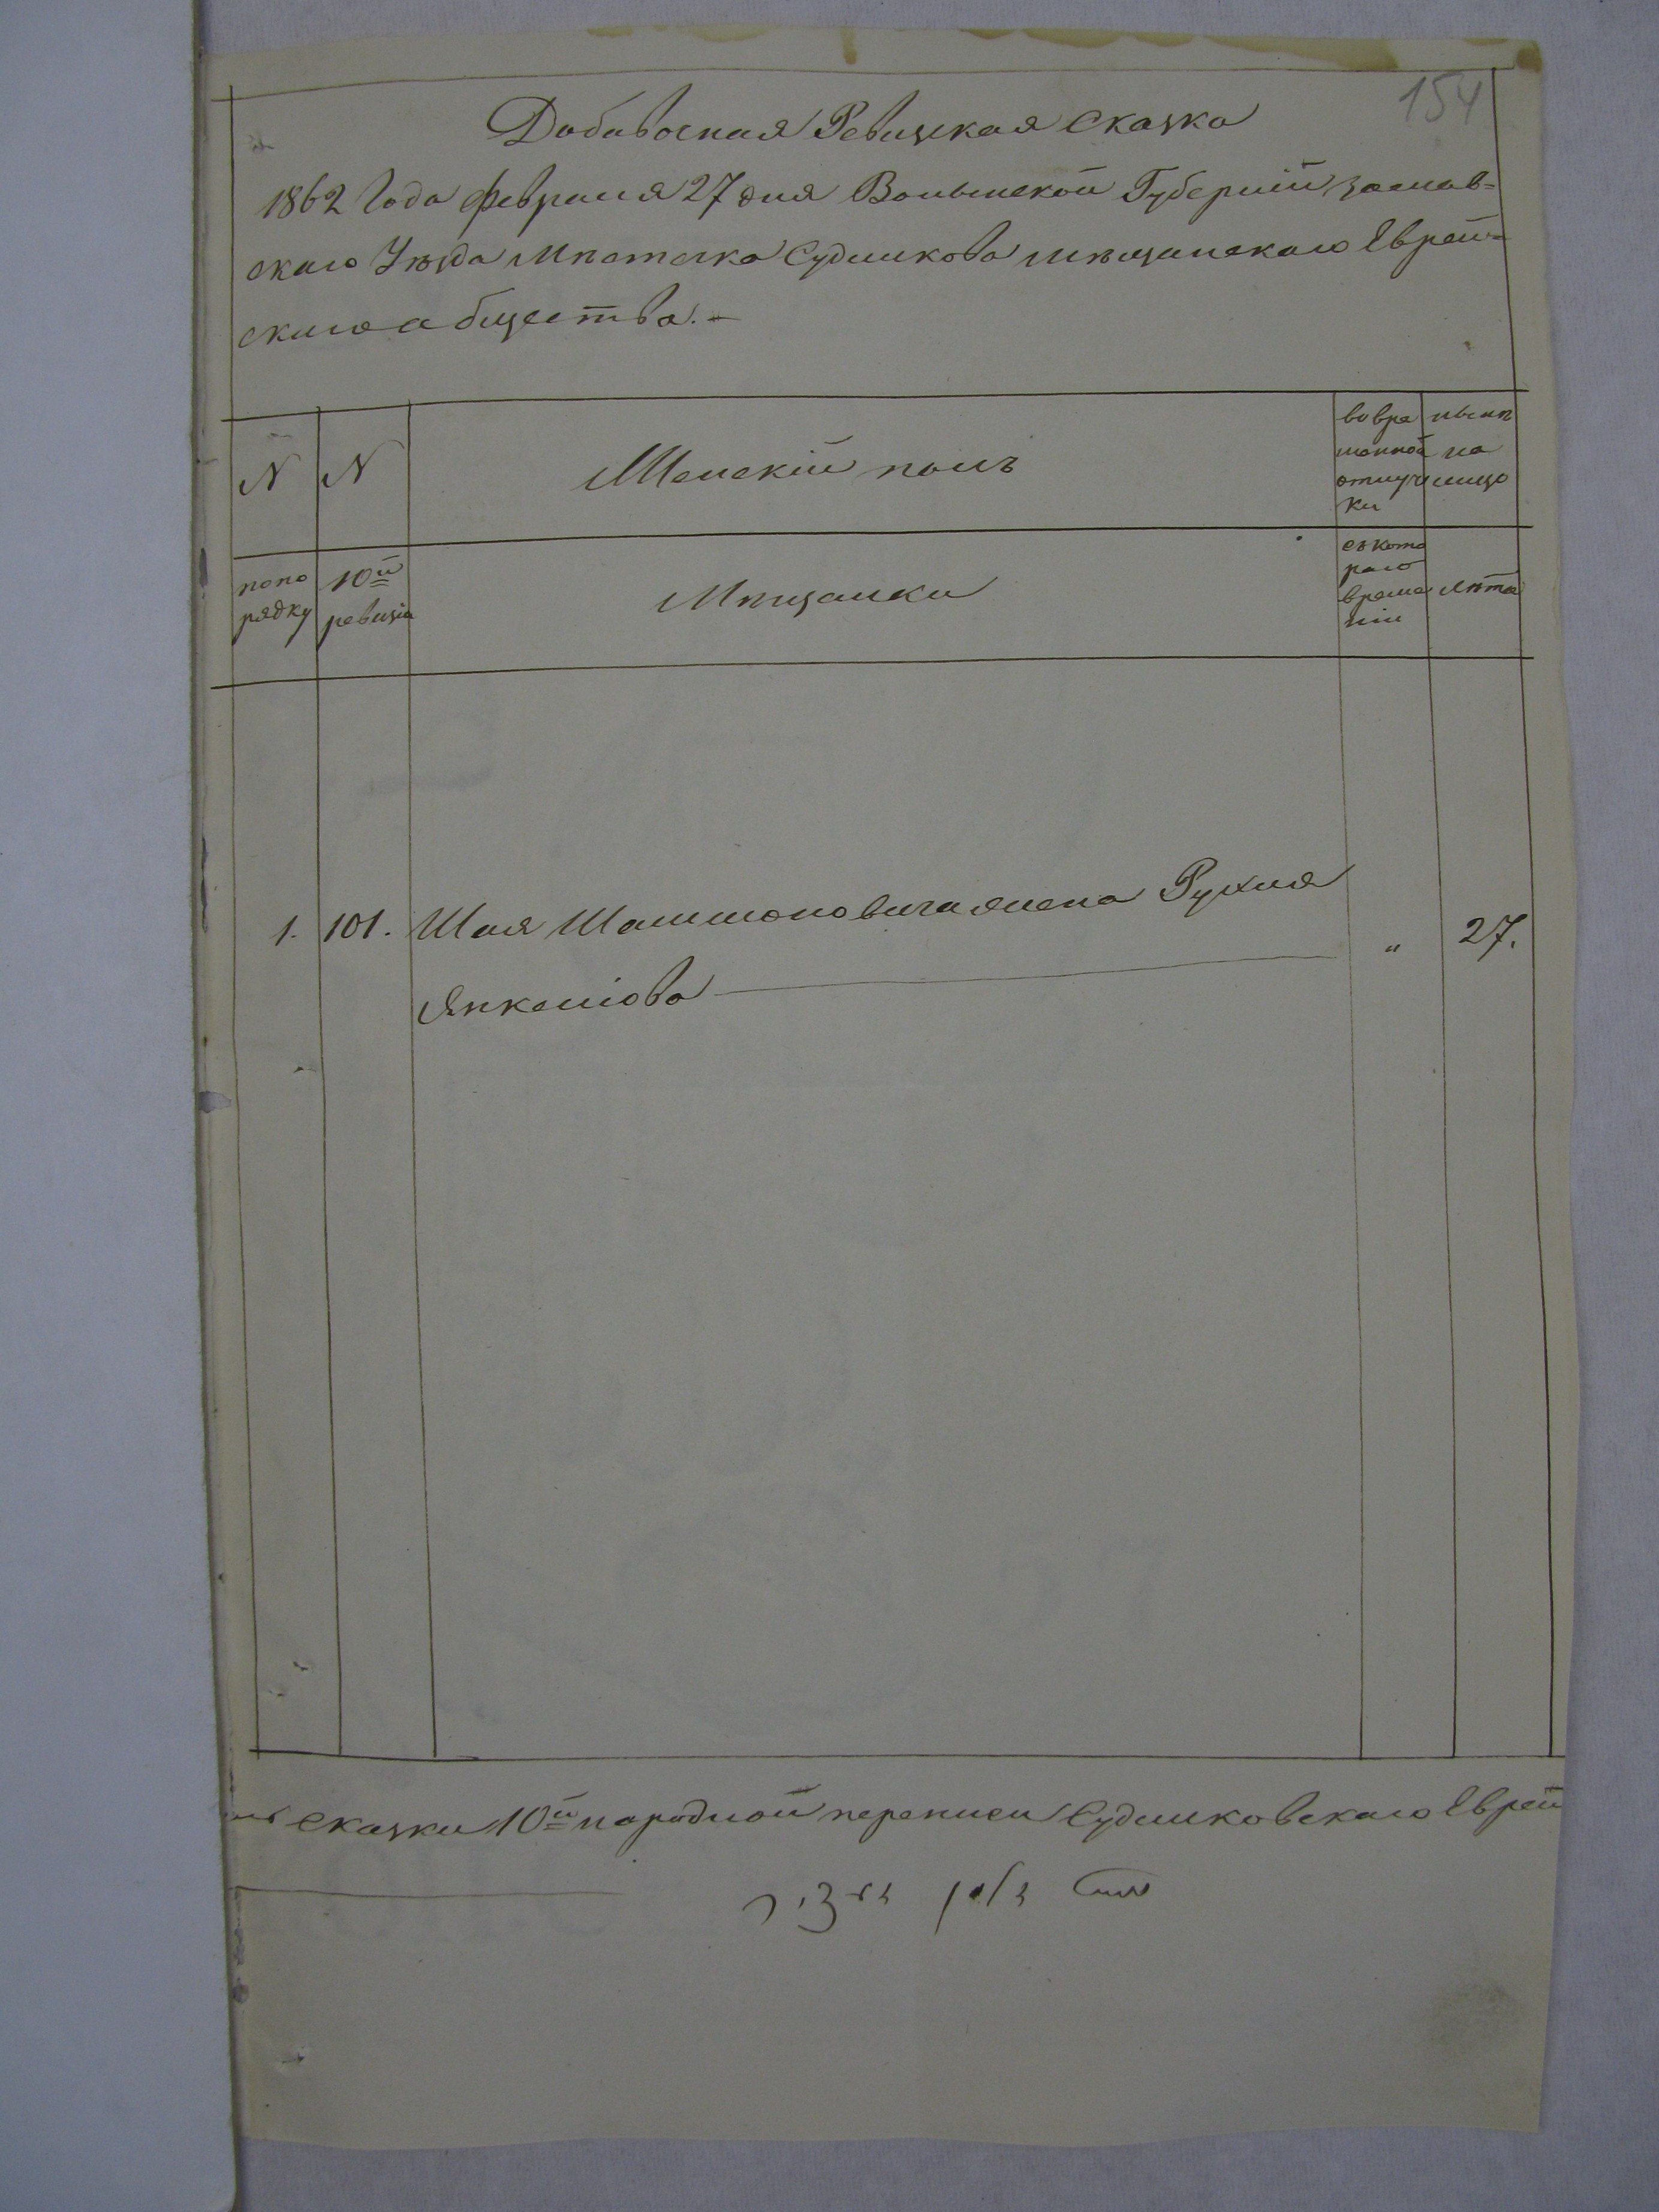 154
Добавочная Ревизская Сказка
1862 Года февраля 27 дня Волынской Губерніи, Заслав=
скаго Уѣзда Мѣстечка Судилкова мѣщанскаго Еврей=
скаго общества.-
N N Женскій полъ вовре нынѣ
менной на
отлуч лицо
ки
попо 10й Мѣщанки съкото
рядку ревизіи раго
време лѣта
ніи
1. 101. Шая Шлимоновича жена Рухля „ 27.
Янкеліова
Сказки 10й народной переписи Судилковскаго Еврей